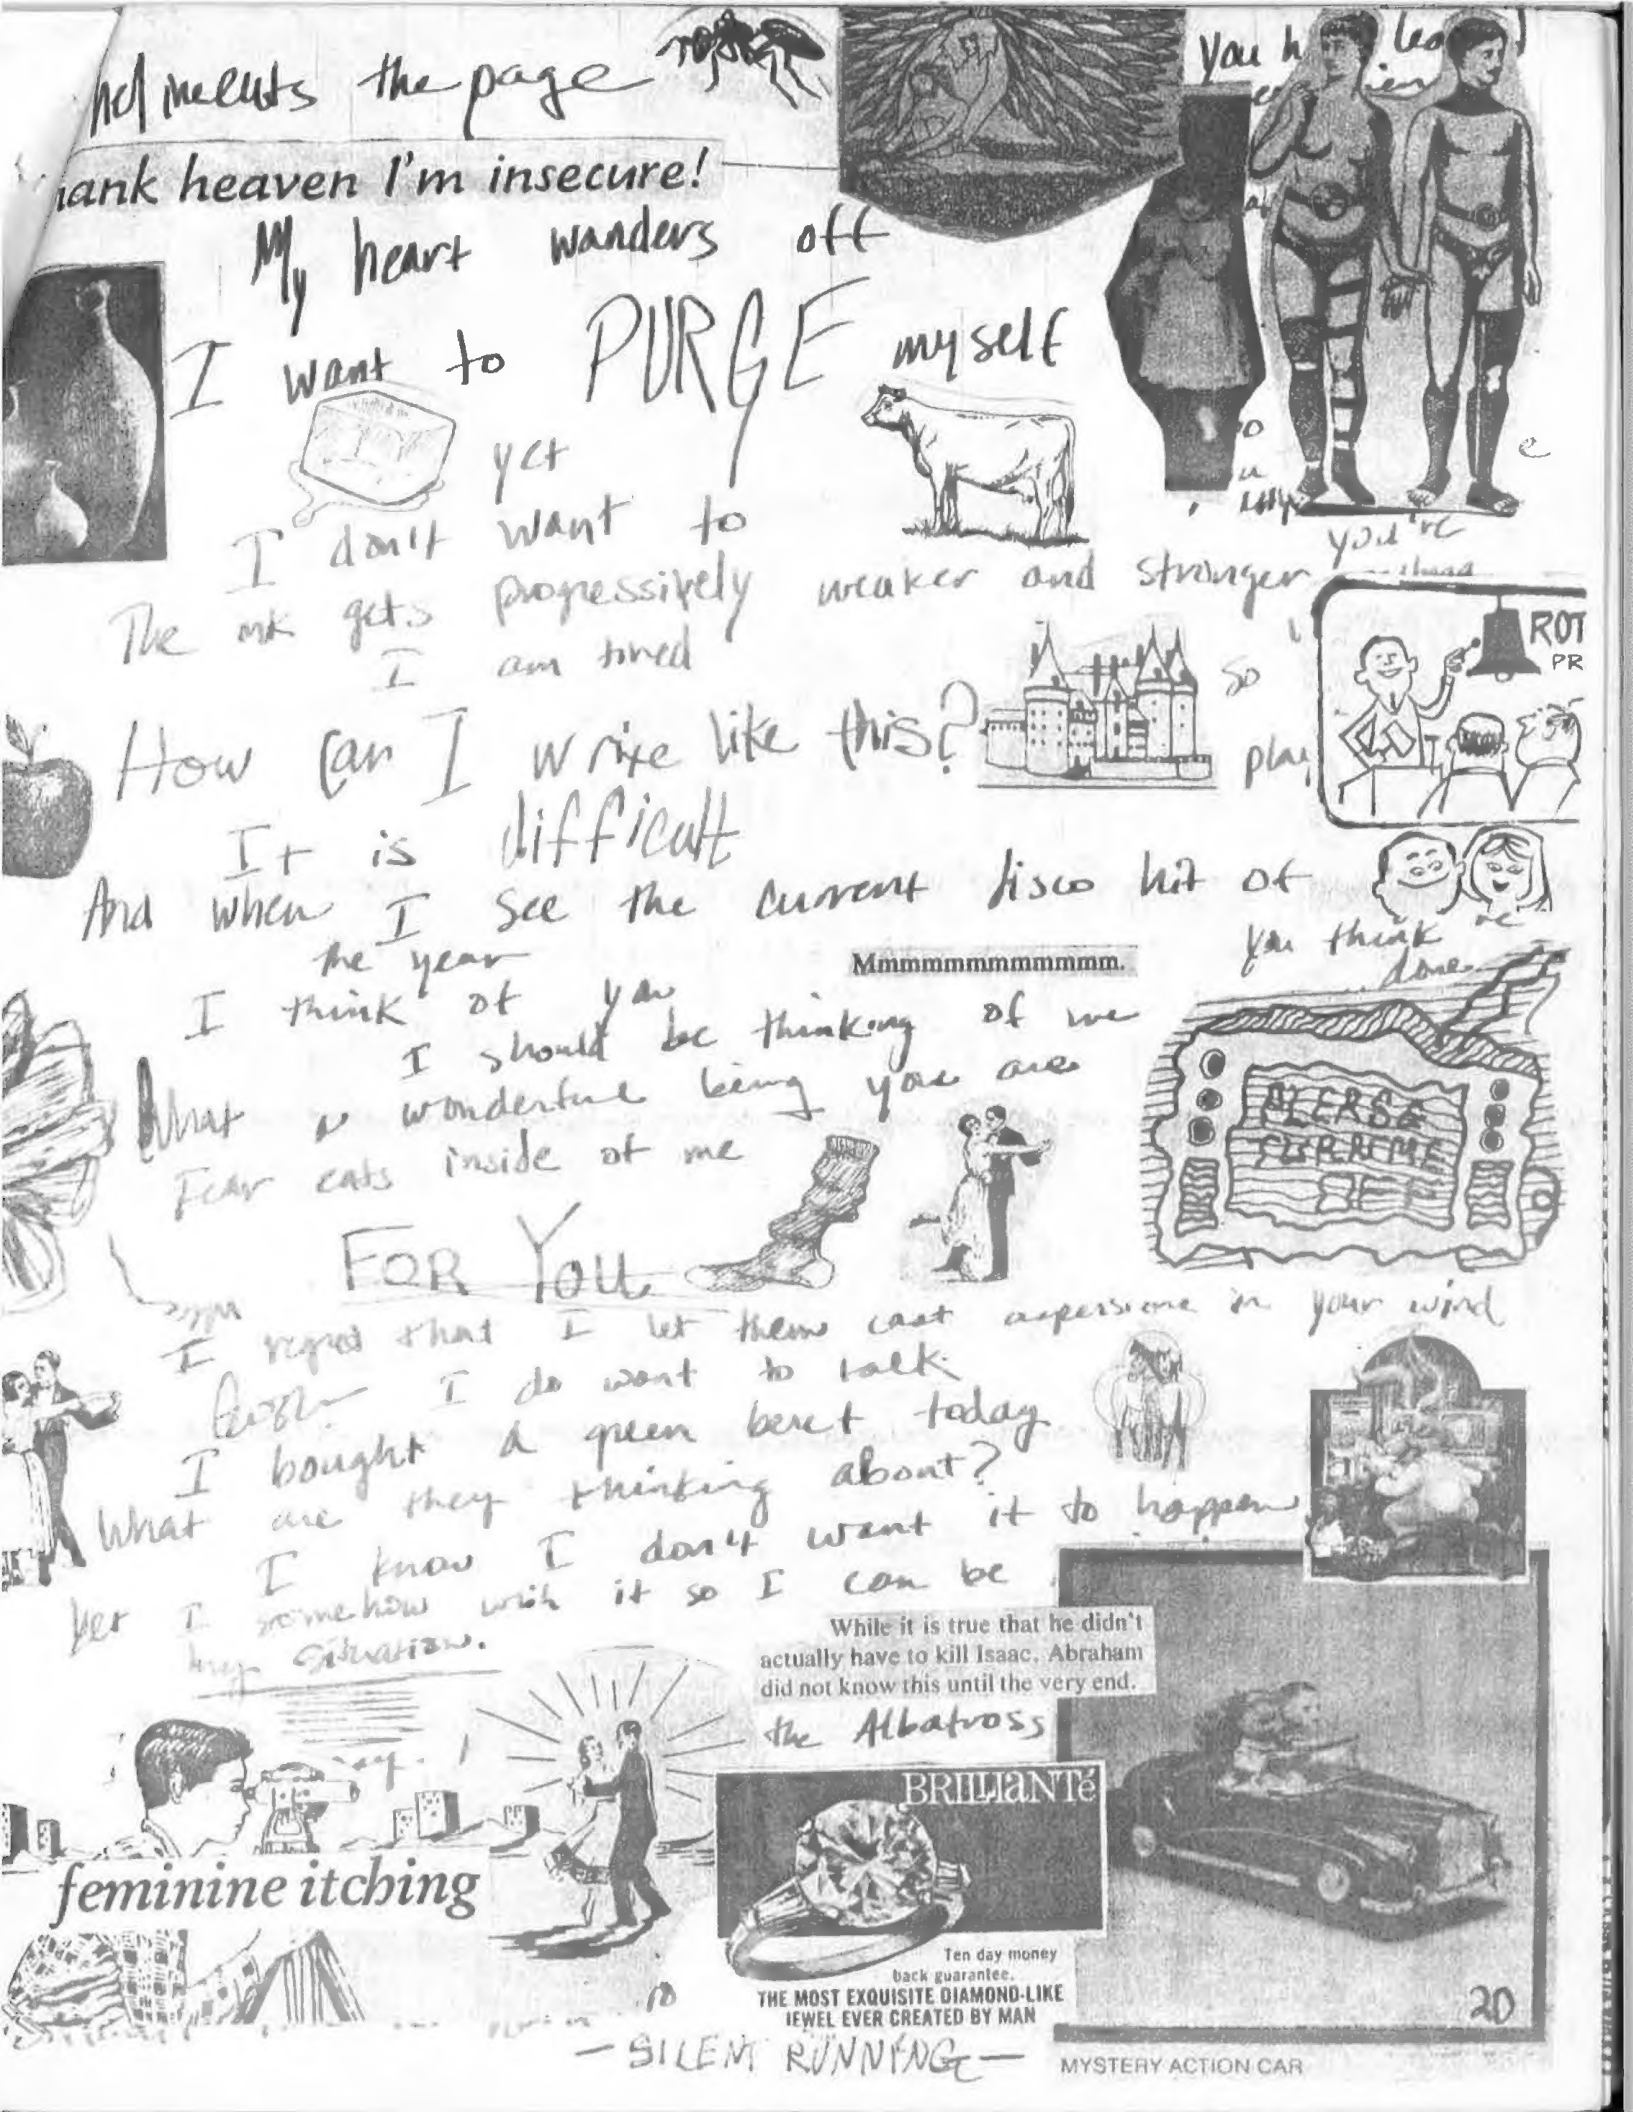 the page
ank heaven I'm insecure!
My heart wanders off
I want to PURGE myself
yet
I don't want to
you're
The ink gets progressively weaker and stronger
I am tired
so
ROT
PR
How can I write like this?
play
It is difficult
And when I see the current disco hit of
the year
you think
done
Mmmmmmmmmmmmm.
I think of you
I should be thinking of me
What a wonderful being you are
PLEASE
Fear eats inside of me
FOR YOU
I regret that I let them cast aspersions in your wind
I do want to talk
I bought a green beret today
What are they thinking about?
I know I don't want it to happen
Yet I somehow wish it so I can be
situation.
While it is true that he didn't
actually have to kill Isaac, Abraham
did not know this until the very end.
the Albatross
BRILLIANTé
feminine itching
Ten day money
back guarantee.
THE MOST EXQUISITE DIAMOND-LIKE
JEWEL EVER CREATED BY MAN
20
— SILENT RUNNING —
MYSTERY ACTION CAR